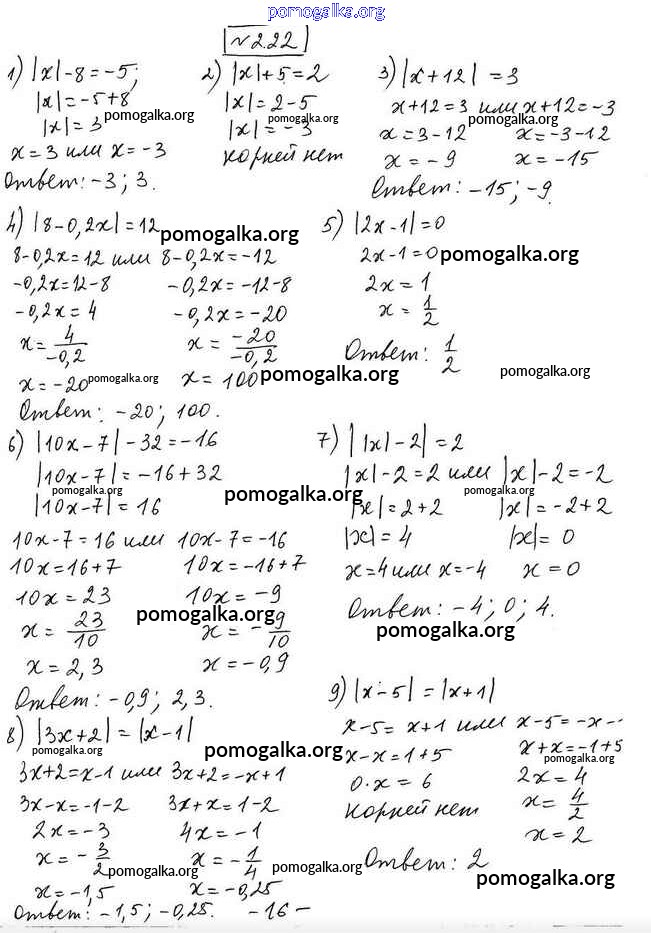 pomogalka.org
№2.22
1) |x|-8=-5;
|x|=-5+8
|x|=3
pomogalka.org
x=3 или x=-3
Ответ: -3; 3.
2) |x|+5=2
|x|=2-5
|x|=-3
pomogalka.org
корней нет
3) |x+12|=3
x+12=3 или x+12=-3
pomogalka.org
x=3-12 x=-3-12
x=-9 x=-15
Ответ: -15; -9.
4) |8-0,2x|=12
pomogalka.org
8-0,2x=12 или 8-0,2x=-12
-0,2x=12-8 -0,2x=-12-8
-0,2x=4 -0,2x=-20
x=4/-0,2 x=-20/-0,2
x=-20 x=100
pomogalka.org pomogalka.org
Ответ: -20; 100.
5) |2x-1|=0
2x-1=0
pomogalka.org
2x=1
x=1/2
Ответ: 1/2
pomogalka.org
6) |10x-7|-32=-16
|10x-7|=-16+32
pomogalka.org
|10x-7|=16
pomogalka.org
10x-7=16 или 10x-7=-16
10x=16+7 10x=-16+7
10x=23 10x=-9
pomogalka.org
x=23/10 x=-9/10
x=2,3 x=-0,9
Ответ: -0,9; 2,3.
7) ||x|-2|=2
|x|-2=2 или |x|-2=-2
pomogalka.org
|x|=2+2 |x|=-2+2
|x|=4 |x|=0
x=4 или x=-4 x=0
Ответ: -4; 0; 4.
pomogalka.org
8) |3x+2|=|x-1|
pomogalka.org pomogalka.org
3x+2=x-1 или 3x+2=-x+1
3x-x=-1-2 3x+x=1-2
2x=-3 4x=-1
x=-3/2 x=-1/4
pomogalka.org pomogalka.org
x=-1,5 x=-0,25
Ответ: -1,5; -0,25.
9) |x-5|=|x+1|
x-5=x+1 или x-5=-x-
x-x=1+5 x+x=-1+5
pomogalka.org
0·x=6 2x=4
корней нет x=4/2
x=2
Ответ: 2
pomogalka.org
-16-